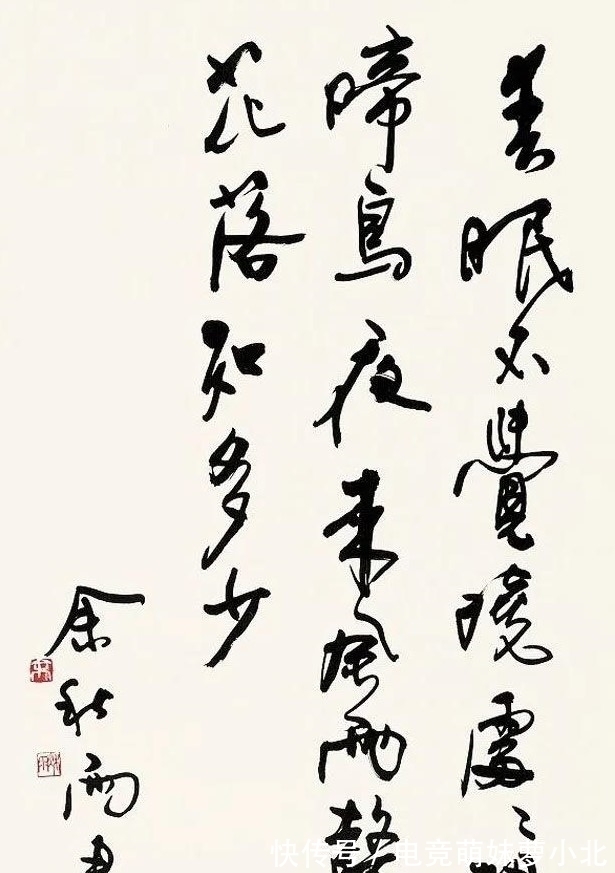 春眠不覺曉處々
啼鳥夜来風雨聲
花落知多少
余秋雨書
快传号 / 电竞萌妹萝小北